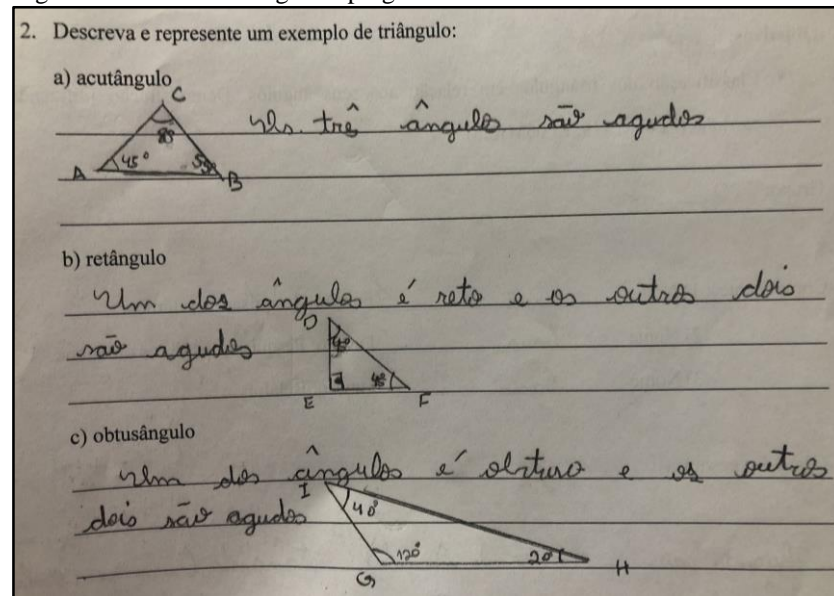 2. Descreva e represente um exemplo de triângulo:
a) acutângulo
C
Os três ângulos são agudos
80
A 45° 55° B
b) retângulo
Um dos ângulos é reto e os outros dois
D
são agudos
45°
E F
c) obtusângulo
Um dos ângulos é obtuso e os outros
I
dois são agudos 40°
120° 20°
G H